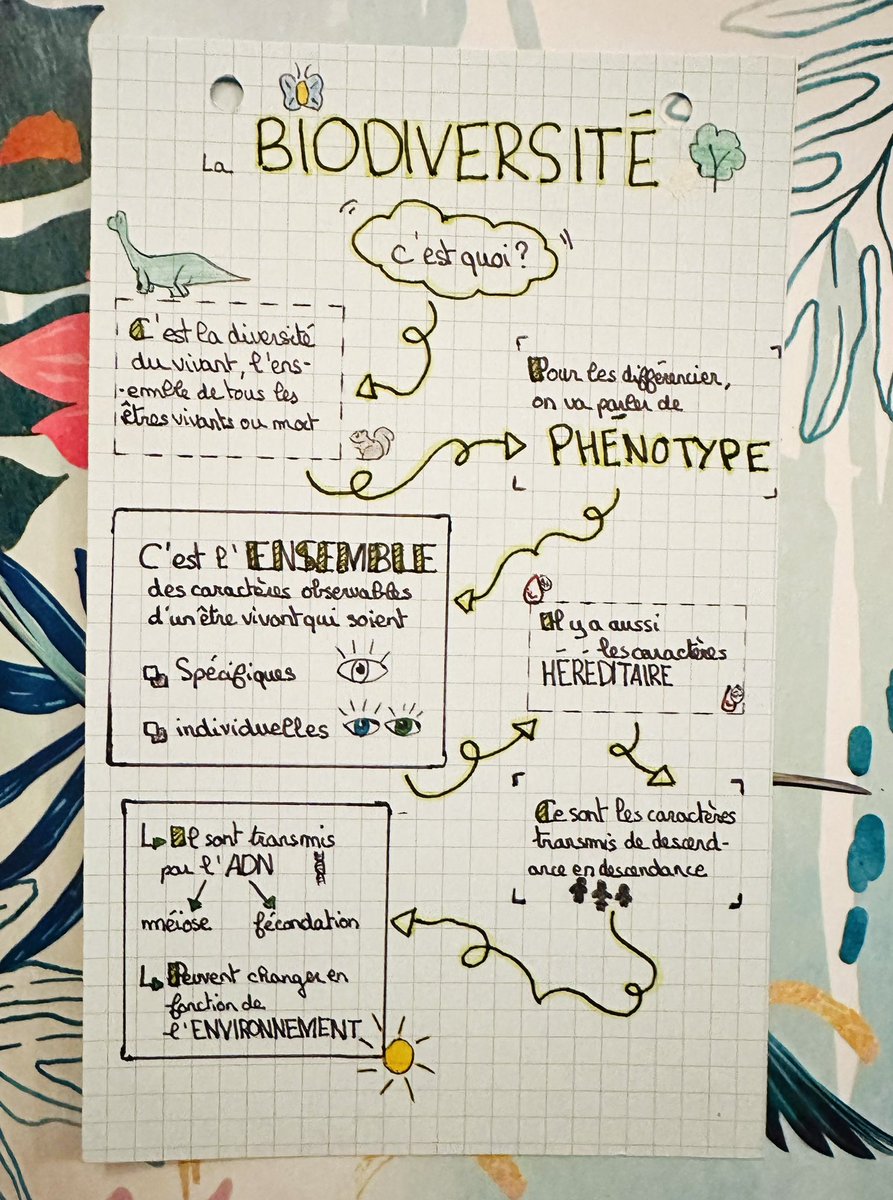 La BIODIVERSITÉ
c'est quoi?
C'est la diversité
du vivant, l'ens-
-emble de tous les
êtres vivants ou mort
Pour les différencier,
on va parler de
PHÉNOTYPE
C'est l'ENSEMBLE
des caractères observables
d'un être vivant qui soient
Spécifiques
individuelles
Il y a aussi
-- les caractères
HEREDITAIRE
Ce sont les caractères
transmis de descend-
ance en descendance
Il sont transmis
par l'ADN
méiose fécondation
Peuvent changer en
fonction de
l'ENVIRONNEMENT